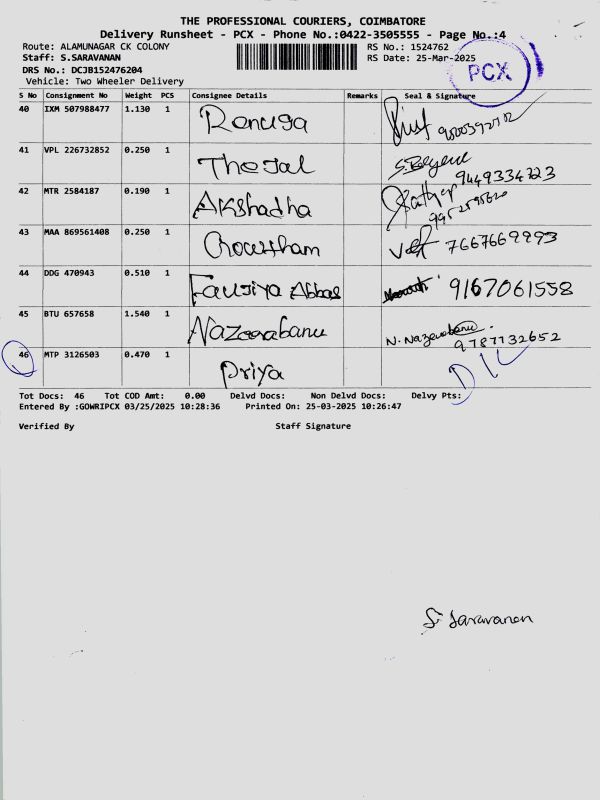 THE PROFESSIONAL COURIERS, COIMBATORE
Delivery Runsheet - PCX - Phone No.:0422-3505555 - Page No.:4
Route: ALAMUNAGAR CK COLONY RS No.: 1524762
Staff: S.SARAVANAN RS Date: 25-Mar-2025
DRS No.: DCJB152476204
Vehicle: Two Wheeler Delivery
PCX
S No Consignment No Weight PCS Consignee Details Remarks Seal & Signature
40 IXM 507988477 1.130 1 Renuga
41 VPL 226732852 0.250 1 Thejal 9449334723
42 MTR 2584187 0.190 1 Akshadha
43 MAA 869561408 0.250 1 Gowtham 7667669993
44 DDG 470943 0.510 1 Fausiya Abbas 9167061558
45 BTU 657658 1.540 1 Nazeerabanu N. Nazeerabanu
9787732652
46 MTP 3126503 0.470 1 Priya D/L
Tot Docs: 46 Tot COD Amt: 0.00 Delvd Docs: Non Delvd Docs: Delvy Pts:
Entered By :GOWRIPCX 03/25/2025 10:28:36 Printed On: 25-03-2025 10:26:47
Verified By Staff Signature
S. Saravanan